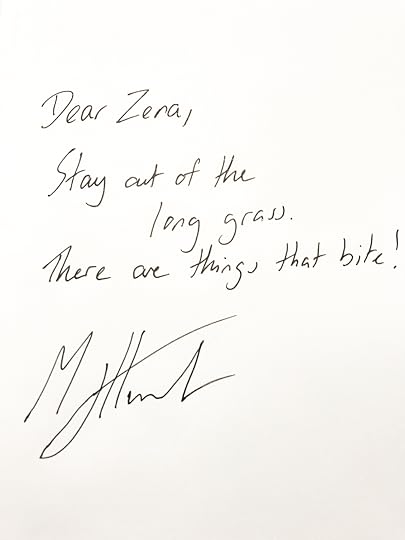 Dear Zena,
Stay out of the
long grass.
There are things that bite!